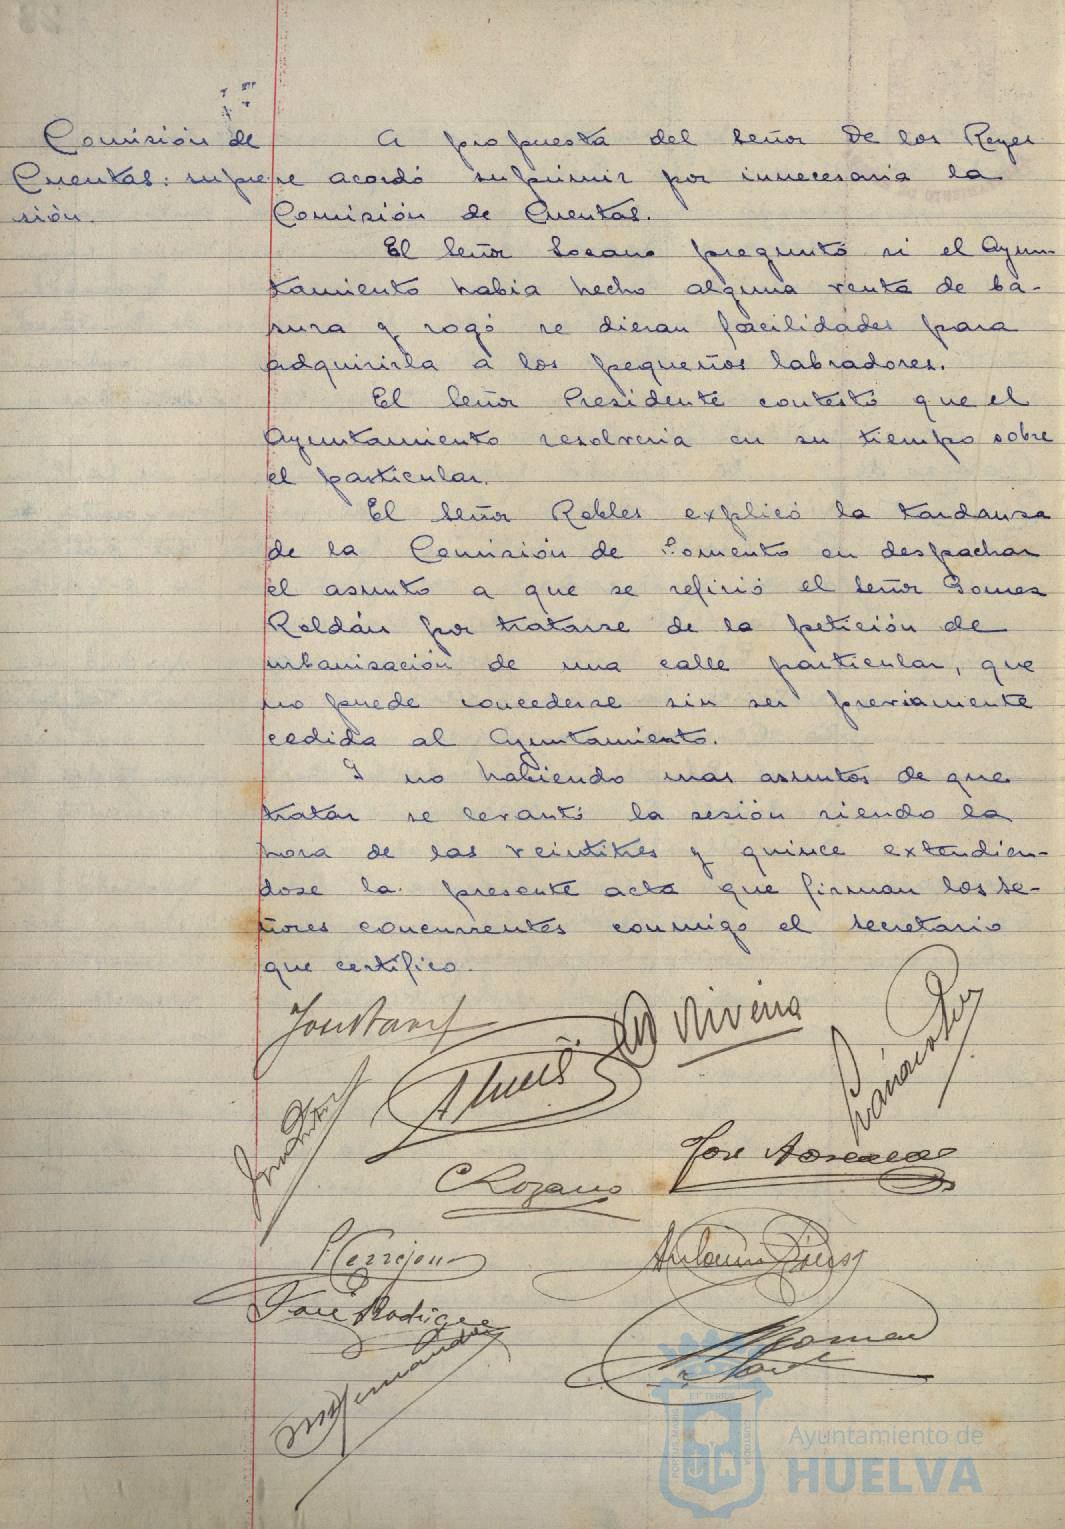 Comisión de
Cuentas: supre-
sión.
A propuesta del señor De los Reyes
se acordó suprimir por innecesaria la
Comisión de Cuentas.
El señor Lozano preguntó si el Ayun-
tamiento habia hecho alguna venta de ba-
sura y rogó se dieran facilidades para
adquirirla a los pequeños labradores.
El señor Presidente contestó que el
Ayuntamiento resolveria en su tiempo sobre
el particular.
El señor Robles explicó la tardanza
de la Comisión de Fomento en despachar
el asunto a que se refirió el señor Gomez
Roldán por tratarse de la petición de
urbanisación de una calle particular, que
no puede concederse sin ser previamente
cedida al Ayuntamiento.
Y no habiendo mas asuntos de que
tratar se levantó la sesión siendo la
hora de las veintitres y quince extendien-
dose la presente acta que firman los se-
ñores concurrentes conmigo el secretario
que certifico.
Rivera
C Lozano
José
P. Cerrejon
Antonio
José Rodriguez
Ayuntamiento de
HUELVA